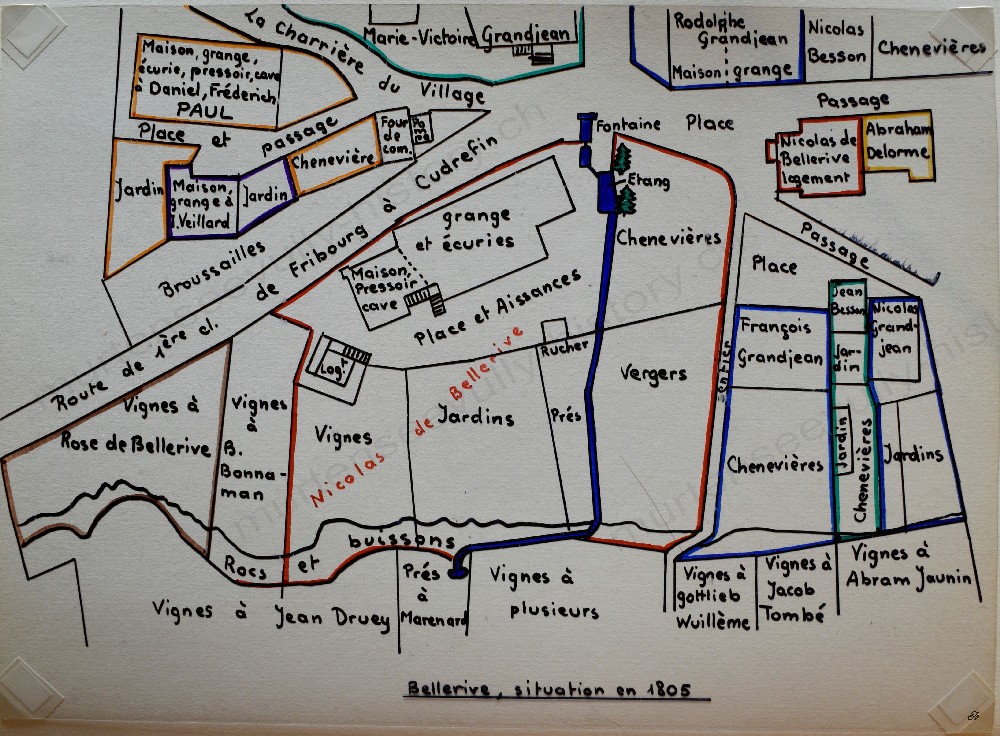 La Charrière
du Village
Marie-Victoire Grandjean
Rodolphe
Grandjean
Maison grange
Nicolas
Besson
Chenevières
Maison, grange,
écurie, pressoir, cave
à Daniel, Fréderich
PAUL
Place et passage
Jardin
Maison,
grange à
J. Veillard
Jardin
Chenevière
Four
de
com.
Fontaine
Place
Passage
Nicolas de
Bellerive
logement
Abraham
Delorme
Etang
Chenevières
Passage
Broussailles
Route de 1ère cl. de Fribourg à Cudrefin
grange
et écuries
Maison
Pressoir
cave
Place et Aissances
Nicolas de Bellerive
Rucher
Log.t
Place
Jean
Besson
Jar-
din
Nicolas
Grand-
jean
François
Grandjean
Sentier
Vergers
Vignes à
Rose de Bellerive
Vignes
à
B.
Bonna-
man
Vignes
Jardins
Prés
Chenevières
Jardin
Chenevières
Jardins
Rocs et buissons
Vignes à Jean Druey
Prés
à
Marenard
Vignes à
plusieurs
Vignes à
gottlieb
Wuillème
Vignes à
Jacob
Tombé
Vignes à
Abram Jaunin
Bellerive, situation en 1805